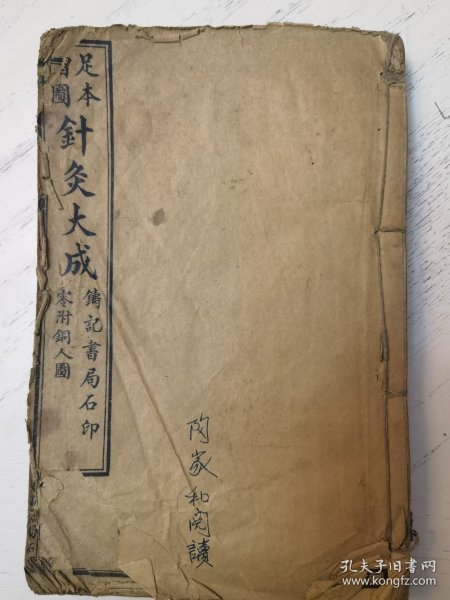 足本
圖
針灸大成
鑄記書局石印
零附銅人圖
家和閱讀
孔夫子旧书网
www.kongfz.com